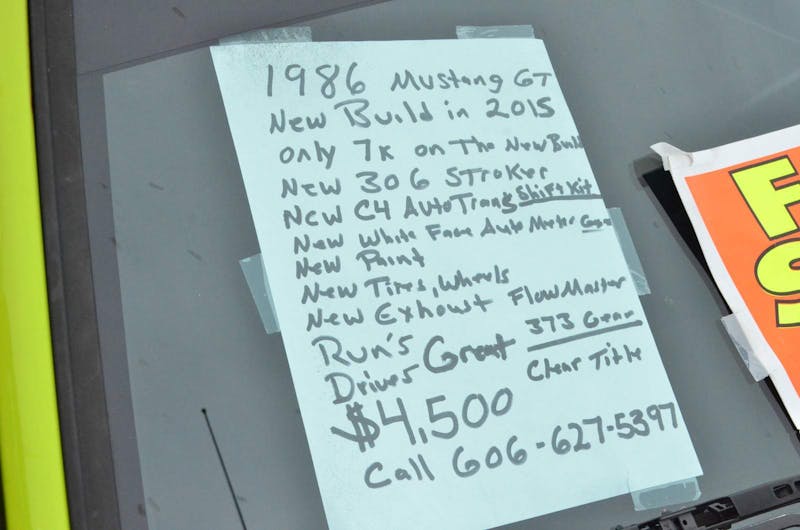 1986 Mustang GT
New Build in 2015
only 7k on The New Build
New 306 Stroker
New C4 Auto Trans Shift Kit
New White Face Auto Meter Gage
New Paint
New Tires, Wheels
New Exhoust Flow Master
Run's 373 Gear
Drives Great Clear Title
$4,500
Call 606-627-5397
F
S